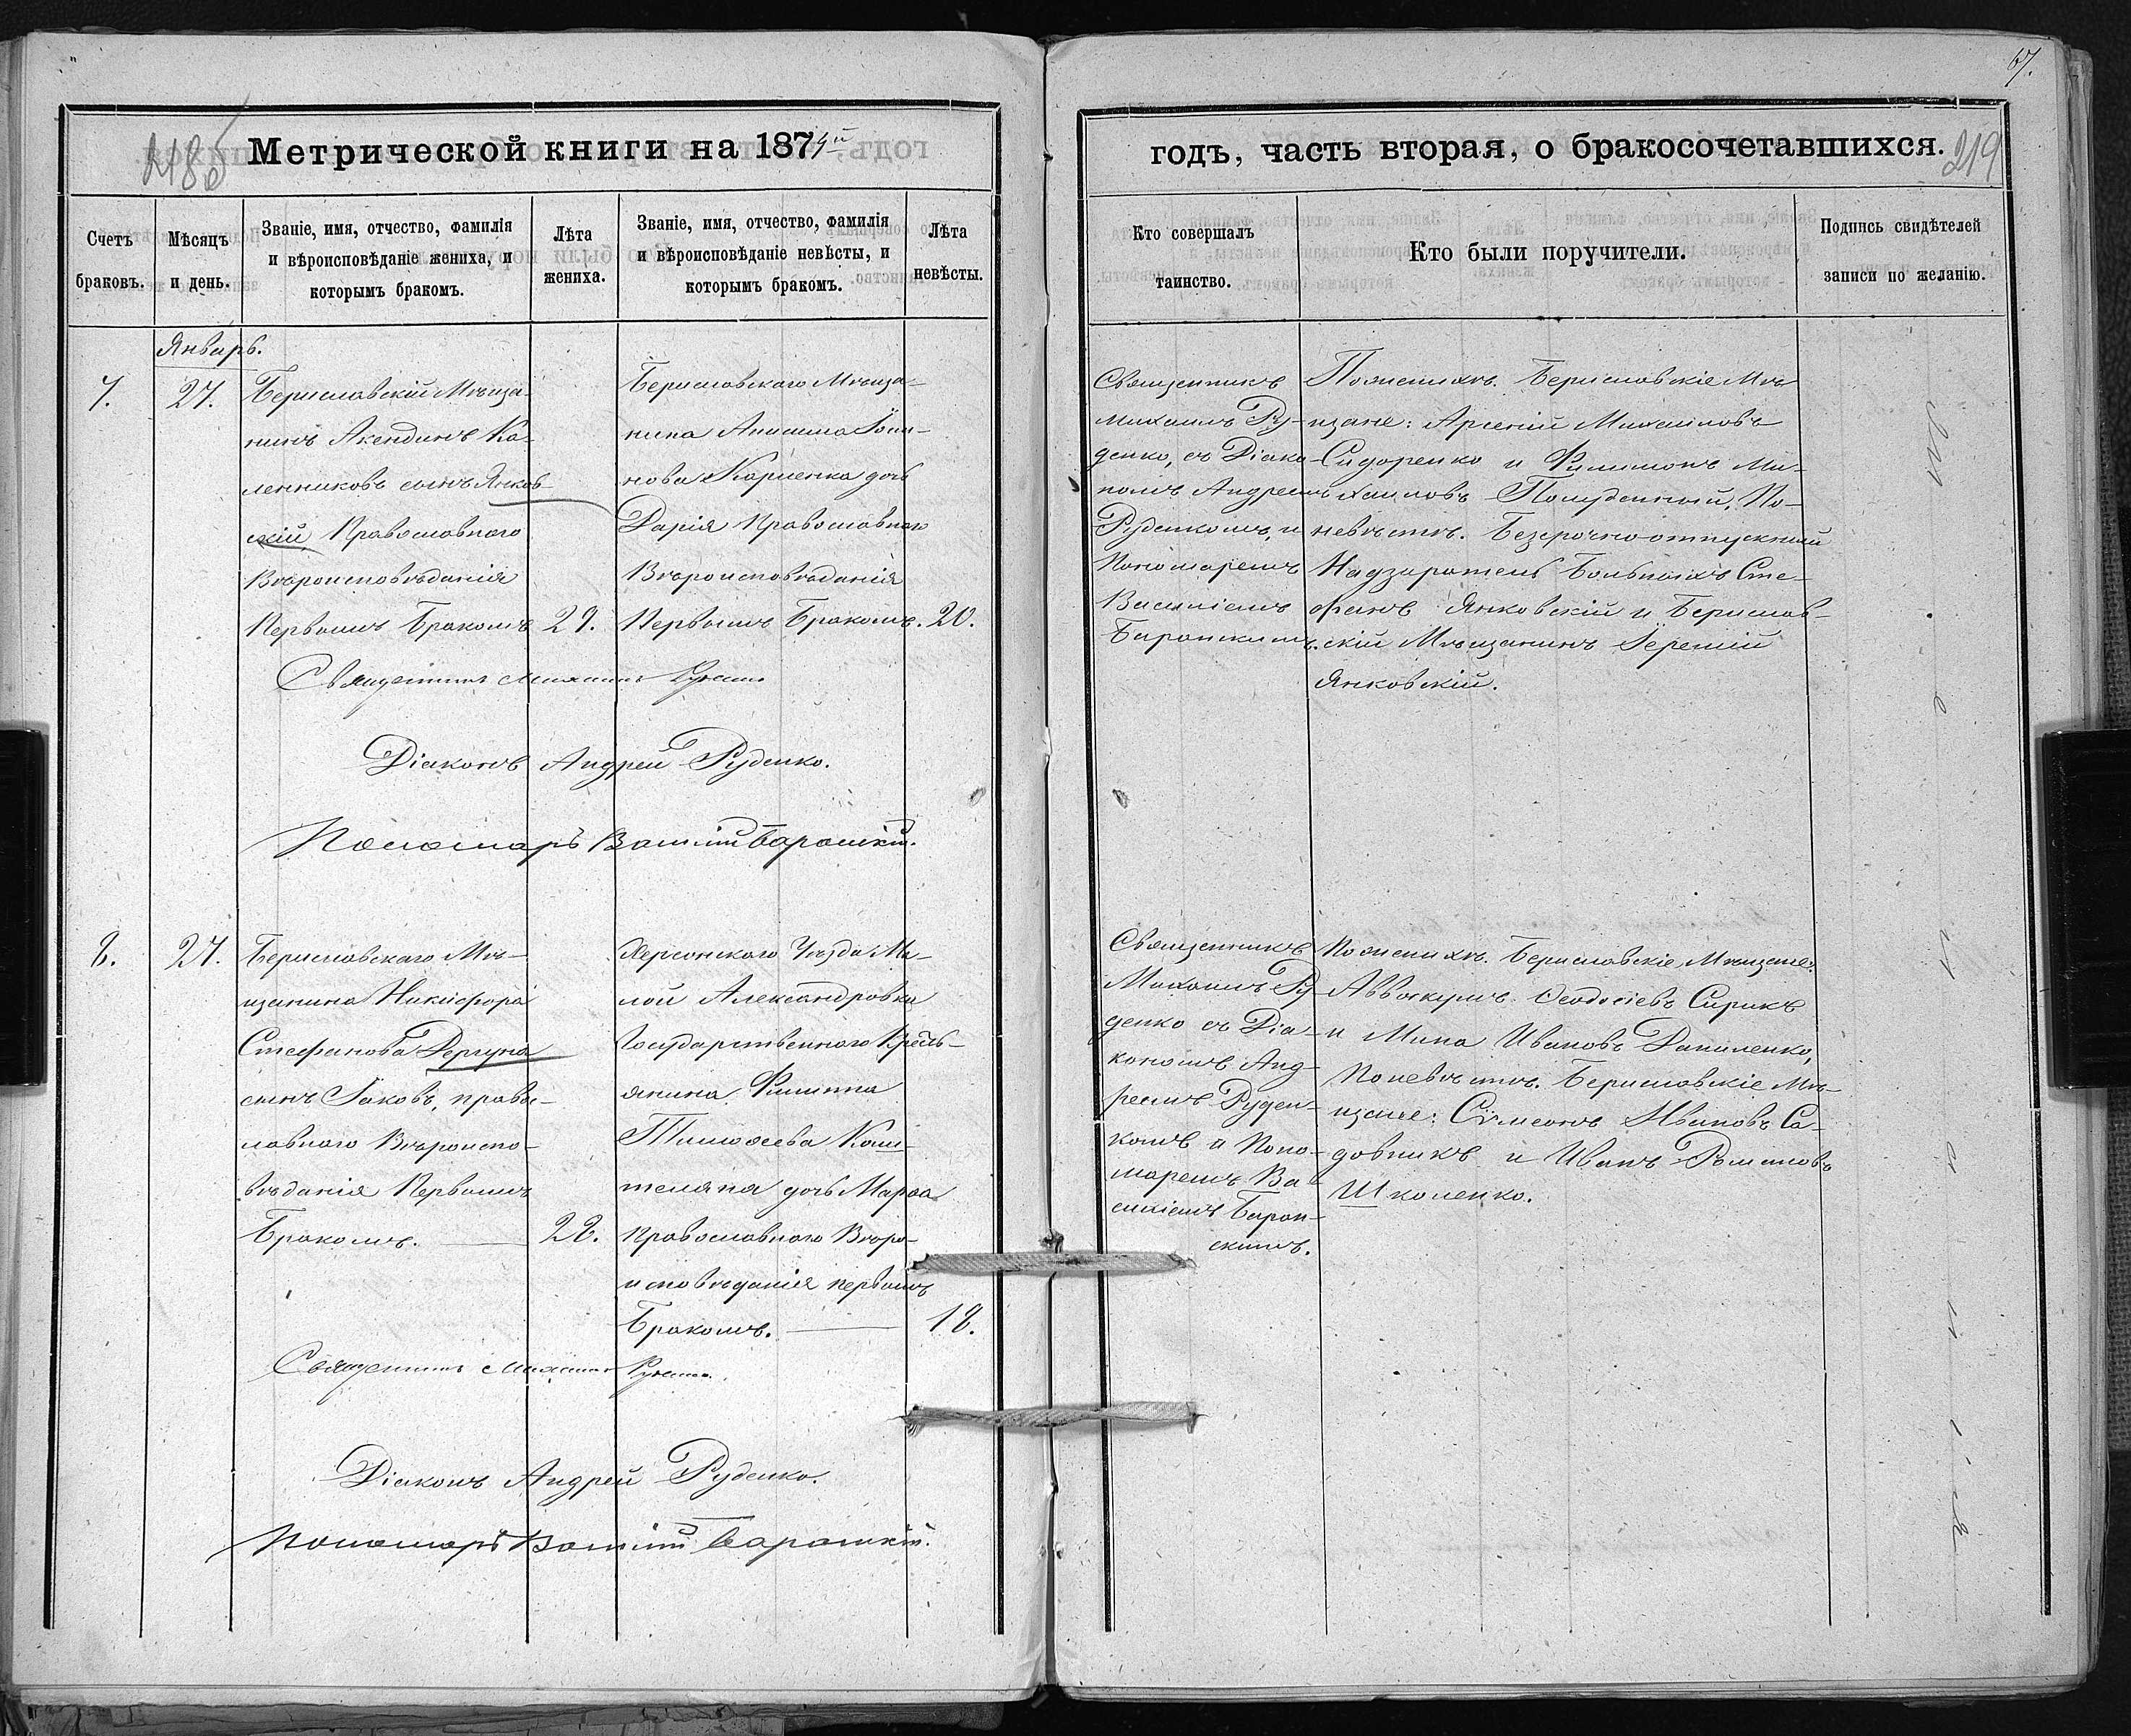 67.
Метрической книги на 1874й
годъ, часть вторая, о бракосочетавшихся.
219
Счетъ браковъ.
Мѣсяцъ и день.
Званіе, имя, отчество, фамилія
и вѣроисповѣданіе жениха, и
которымъ бракомъ.
Лѣта
жениха.
Званіе, имя, отчество, фамилія
и вѣроисповѣданіе невѣсты, и
которымъ бракомъ.
Лѣта
невѣсты.
Кто совершалъ
таинство.
Кто были поручители.
Подпись свидѣтелей
записи по желанію.
Январь.
7.
27.
Бериславскій Мѣща-
нинъ Акендинъ Ка-
ленниковъ сынъ Янков-
скій Православнаго
Вѣроисповѣданія
Первымъ Бракомъ
29.
Бериславскаго Мѣща-
нина Анисима Іоан-
нова Корненка дочь
Дарія Православнаго
Вѣроисповѣданія
Первымъ Бракомъ.
20.
Священникъ
Михаилъ Ру-
денко, съ Діако-
номъ Андреемъ
Руденкомъ, и
Пономаремъ
Василіемъ
Баранскимъ.
Поженихѣ. Бериславскіе Мѣ-
щане: Арсеній Михаиловъ
Сидоренко и Филимонъ Ми-
хаиловъ Полуденный, По-
невѣстѣ. Безсрочноотпускный
Надзиратель Больныхъ Сте-
фанъ Янковскій и Берислав-
скій Мѣщанинъ Іеремій
Янковскій.
Священникъ Михаилъ Руденко
Діаконъ Андрей Руденко.
Пономарь Василій Баранскій.
8.
27.
Бериславскаго Мѣ-
щанина Никифора
Стефанова Дергуна
сынъ Іаковъ, правос-
лавнаго Вѣроиспо-
вѣданія Первымъ
Бракомъ.
22.
Херсонскаго Уѣзда Ма-
лой Александровки
Государственнаго Кресть-
янина Филиппа
Тимоѳеева Каш-
теляна дочь Марѳа
Православнаго Вѣро-
исповѣданія первымъ
Бракомъ.
18.
Священникъ
Михаилъ Ру-
денко съ Діа-
кономъ Анд-
реемъ Руден-
комъ и Поно-
маремъ Ва-
силіемъ Баран-
скимъ.
Поженихѣ. Бериславскіе Мѣщане:
Аввакумъ Ѳеодосіевъ Сирикъ
и Мина Ивановъ Даниленко,
Поневѣстѣ. Бериславскіе Мѣ-
щане: Сѵмеонъ Ивановъ Са-
довникъ и Иванъ Романовъ
Школенко.
Священникъ Михаилъ Руденко.
Діаконъ Андрей Руденко.
Пономарь Василій Баранскій.